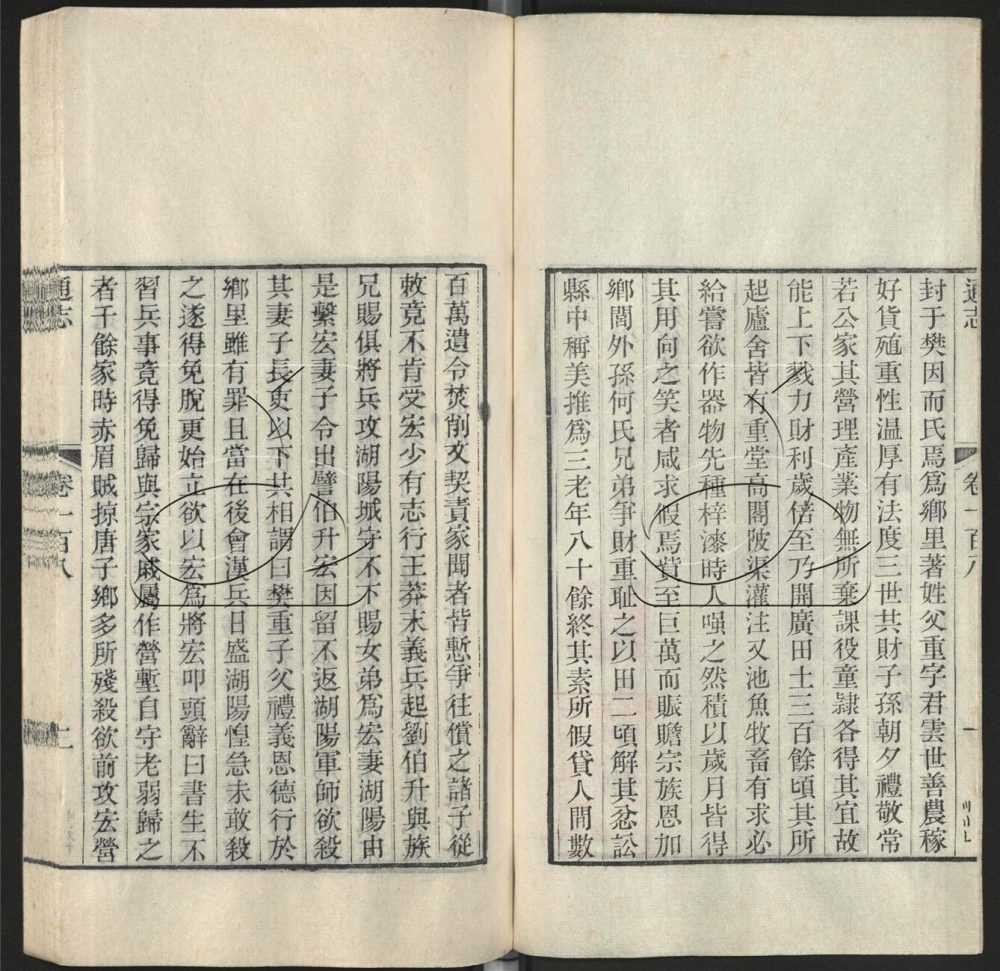 通志
卷一百八
一
封于樊因而氏焉爲鄉里著姓父重字君雲世善農稼
好貨殖重性溫厚有法度三世共財子孫朝夕禮敬常
若公家其營理產業物無所棄課役童隷各得其宜故
能上下戮力財利歲倍至乃開廣田土三百餘頃其所
起廬舍皆有重堂高閣陂渠灌注又池魚牧畜有求必
給嘗欲作器物先種梓漆時人嗤之然積以歲月皆得
其用向之笑者咸求假焉貲至巨萬而賑贍宗族恩加
鄉閭外孫何氏兄弟爭財重耻之以田二頃解其忿訟
縣中稱美推爲三老年八十餘終其素所假貸人間數
百萬遺令焚削文契責家聞者皆慙爭往償之諸子從
敕竟不肯受宏少有志行王莽末義兵起劉伯升與族
兄賜俱將兵攻湖陽城守不下賜女弟爲宏妻湖陽由
是繫宏妻子令出譬伯升宏因留不返湖陽軍師欲殺
其妻子長吏以下共相謂曰樊重子父禮義恩德行於
鄉里雖有罪且當在後會漢兵日盛湖陽惶急未敢殺
之遂得免脫更始立欲以宏爲將宏叩頭辭曰書生不
習兵事竟得免歸與宗家戚屬作營塹自守老弱歸之
者千餘家時赤眉賊掠唐子鄉多所殘殺欲前攻宏營
通志
卷一百八